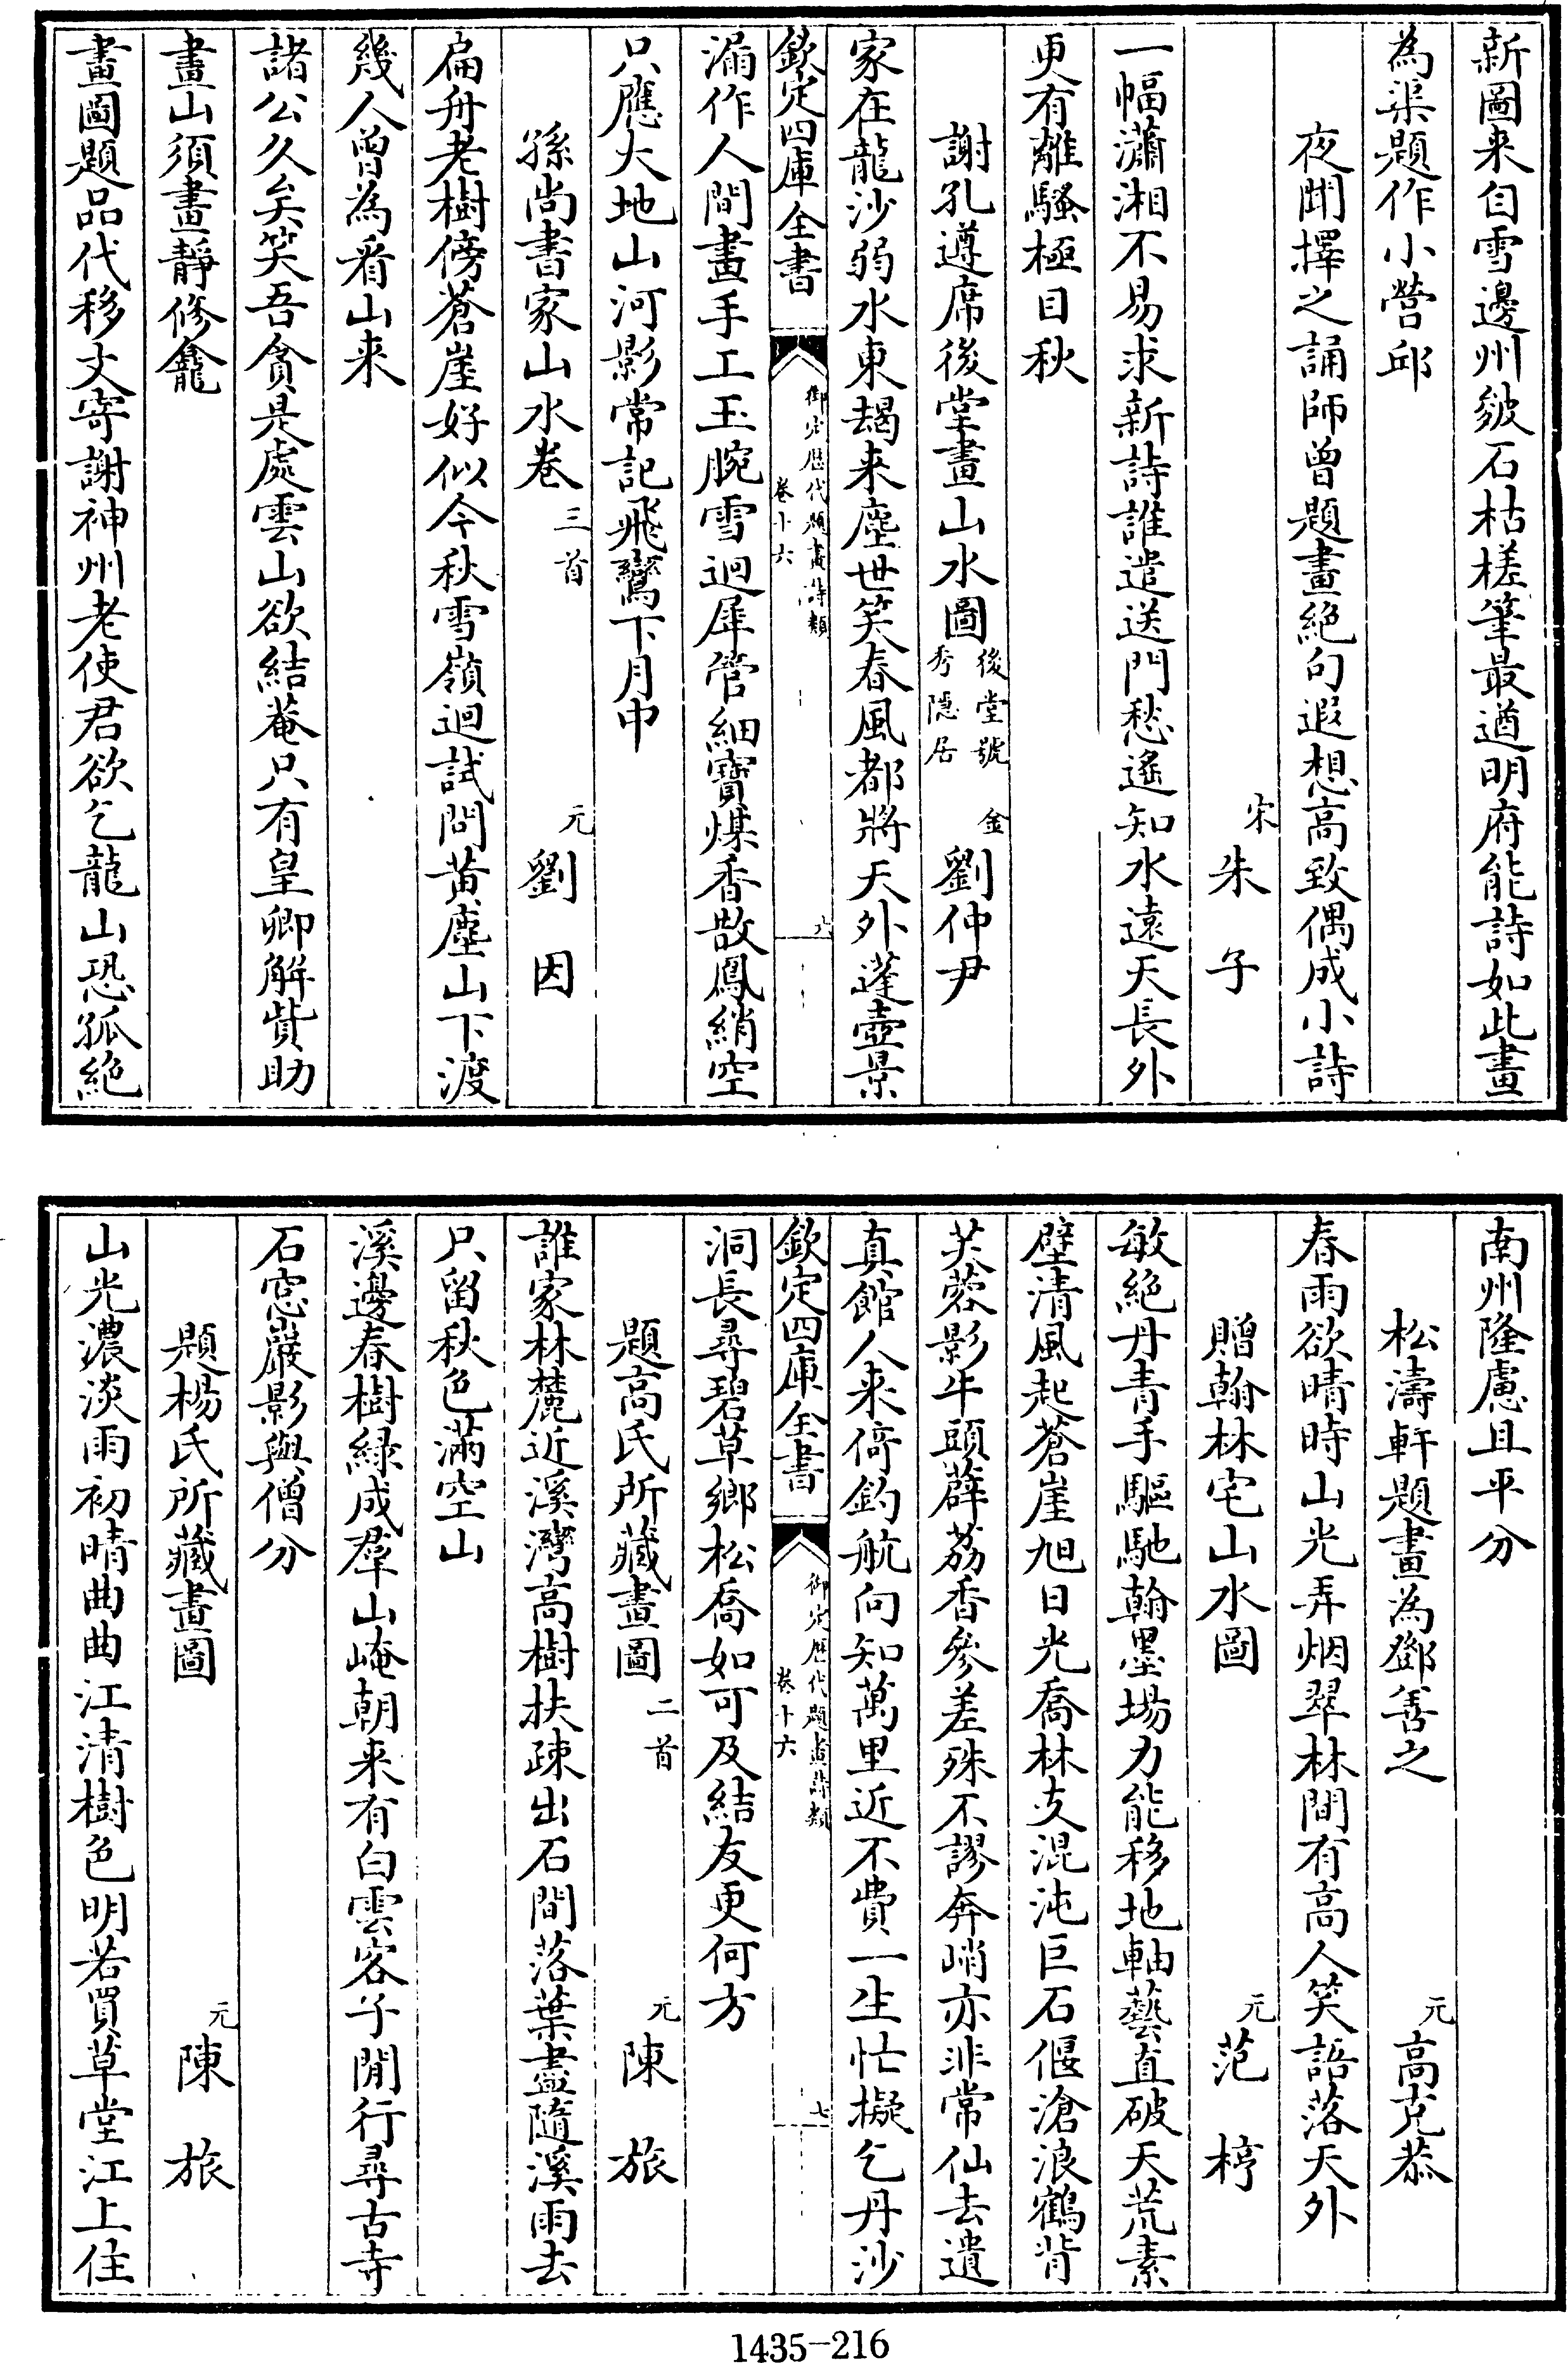 新圖来自雪邊州皴石枯槎筆最遒明府能詩如此畫
為渠題作小營邱
夜聞擇之誦師曾題畫絶句遐想高致偶成小詩
宋朱子
一幅瀟湘不易求新詩誰遣送門愁遙知水遠天長外
更有離騷極目秋
謝孔遵席後堂畫山水圖後堂號秀隱居 金劉仲尹
家在龍沙弱水東朅来塵世笑春風都將天外蓬壺景
欽定四庫全書 御定歴代題畫詩類 卷十六 六
漏作人間畫手工玉腕雪迴犀管細寶煤香散鳳綃空
只應大地山河影常記飛鸞下月中
孫尚書家山水卷三首 元劉因
扁舟老樹傍蒼崖好似今秋雪嶺迴試問黄塵山下渡
幾人曾為看山来
諸公久矣笑吾貪是處雲山欲結菴只有皇卿解貲助
畫山須畫靜修龕
畫圖題品代移文寄謝神州老使君欲乞龍山恐孤絶
南州隆慮且平分
松濤軒題畫為鄧善之 元高克恭
春雨欲晴時山光弄烟翠林間有高人笑語落天外
贈翰林宅山水圖 元范梈
敏絶丹青手驅馳翰墨塲力能移地軸藝直破天荒素
壁清風起蒼崖旭日光喬林支混沌巨石偃滄浪鶴背
芙蓉影牛頭薜荔香參差殊不謬奔峭亦非常仙去遺
真館人来倚釣航向知萬里近不費一生忙擬乞丹沙
欽定四庫全書 御定歴代題畫詩類 卷十六 七
洞長尋碧草鄉松喬如可及結友更何方
題高氏所藏畫圖二首 元陳旅
誰家林麓近溪灣高樹扶疎出石間落葉盡隨溪雨去
只留秋色滿空山
溪邊春樹緑成羣山崦朝来有白雲客子閒行尋古寺
石窓巖影與僧分
題楊氏所藏畫圖 元陳旅
山光濃淡雨初晴曲曲江清樹色明若買草堂江上住
1435-216